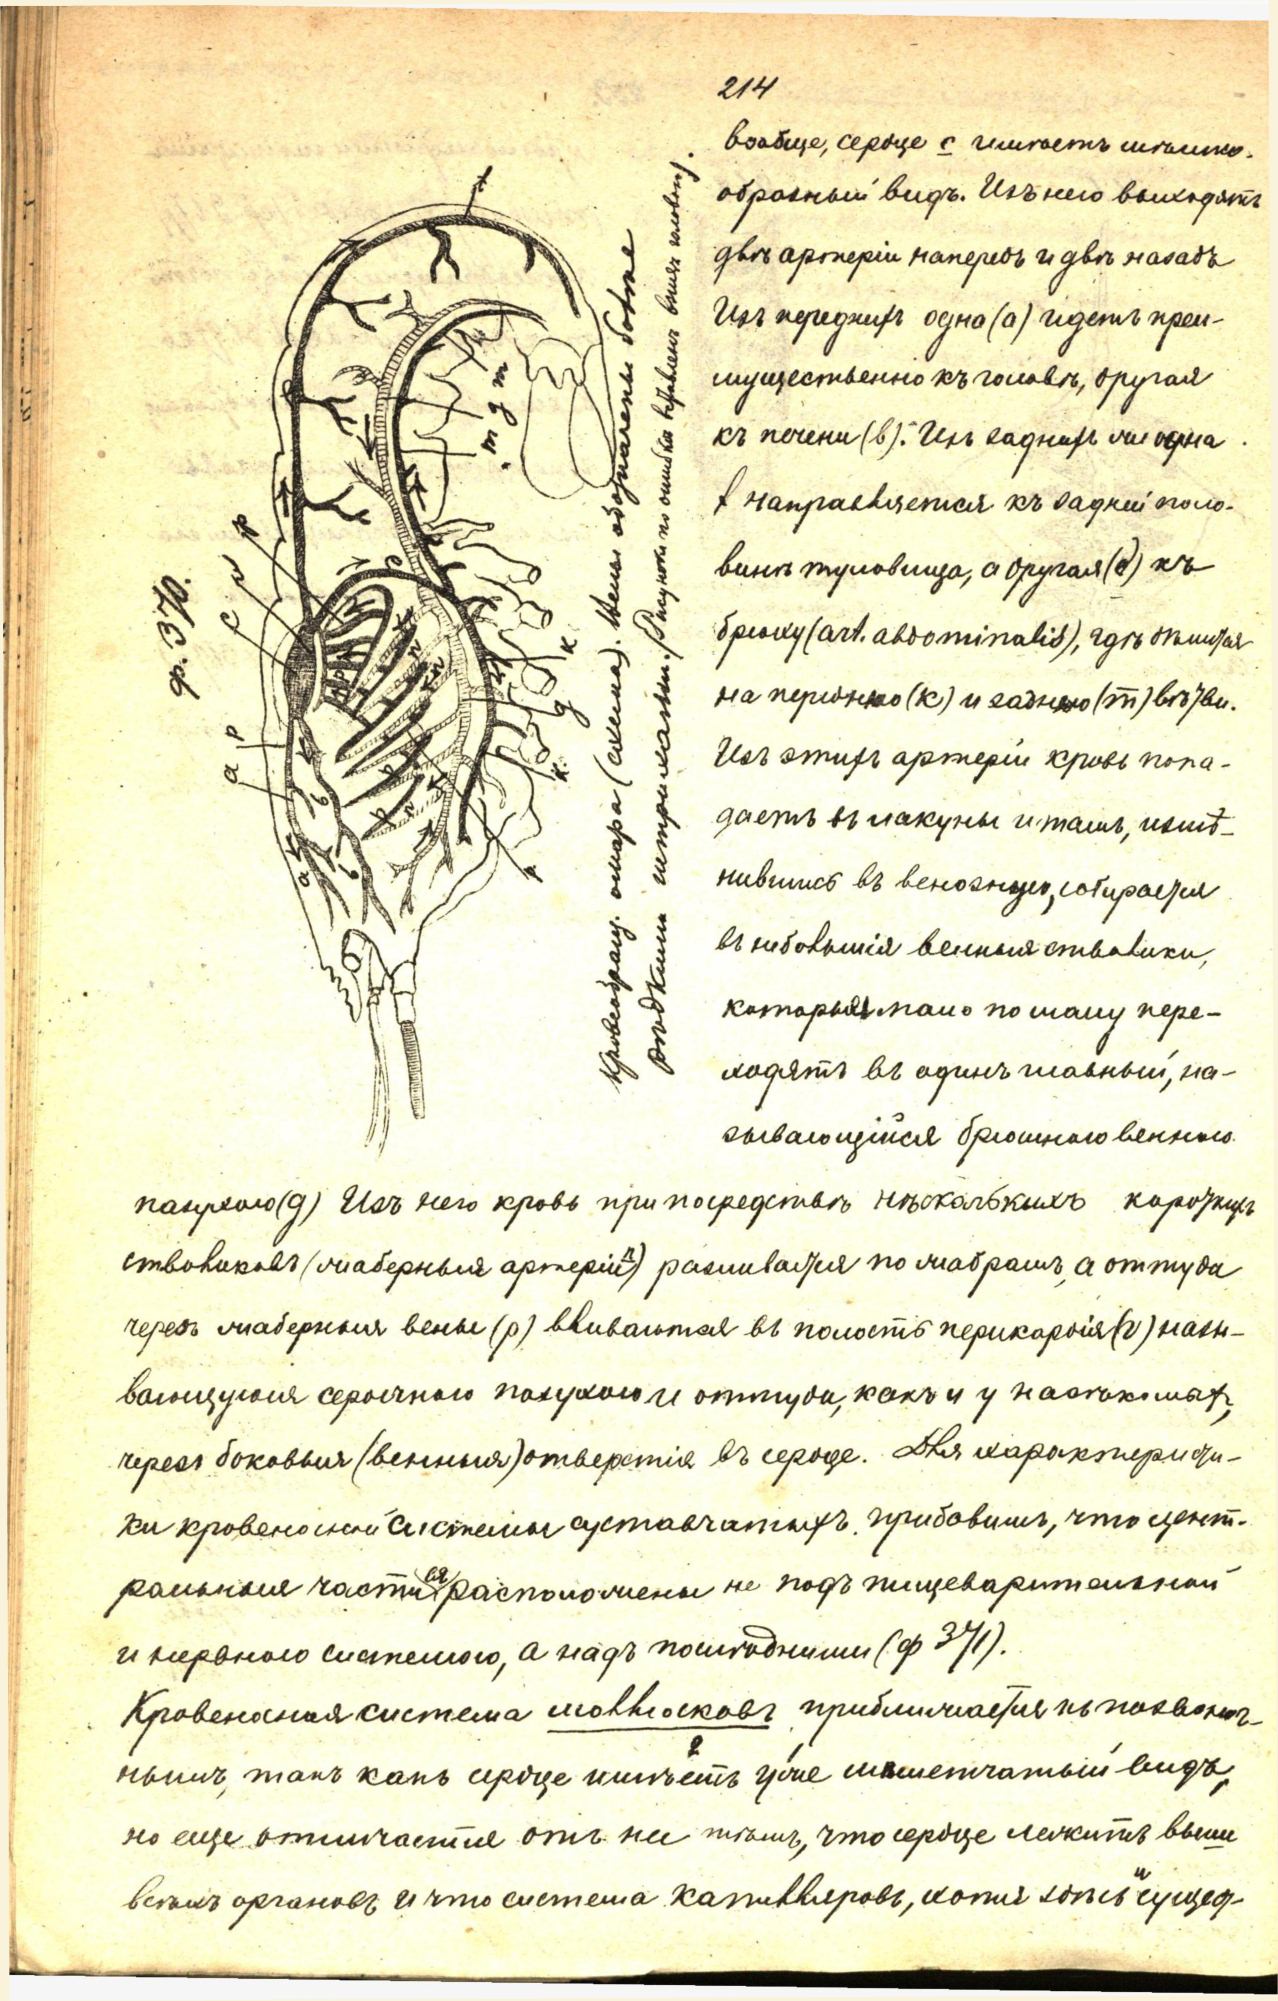 214
вообще, сердце с имѣетъ мѣшко-
образный видъ. Изъ него выходятъ
двѣ артеріи напередъ и двѣ назадъ
Изъ переднихъ одна (а) идетъ преи-
мущественно къ головѣ, другая
къ печени (в). Изъ заднихъ же одна
f направляется къ задней поло-
винѣ туловища, а другая (е) къ
брюху (art. abdominalis), гдѣ дѣлится
на переднюю (к) и заднюю (m) вѣтви.
Изъ этихъ артерій кровь попа-
даетъ въ лакуны и тамъ, измѣ-
нившись въ венозную, собирается
въ небольшія венныя стволики,
которыя мало по малу пере-
ходятъ въ одинъ главный, на-
зывающійся брюшною венною
пазухою (g) Изъ него кровь при посредствѣ нѣсколькихъ коротких
стволиковъ (жаберныя артеріи n) разливается по жабрамъ, а оттуда
черезъ жаберныя вены (p) вливаются въ полость перикардія (v) назы-
вающуюся сердечною пазухою и оттуда, какъ и у насѣкомыхъ,
черезъ боковыя (венныя) отверстія въ сердце. Для характеристи-
ки кровеносной системы суставчатыхъ прибавимъ, что цент-
ральныя части ея расположены не подъ пищеварительной
и нервною системою, а надъ послѣдними (ф 371).
Кровеносная система моллюсковъ приближается къ позвоноч-
нымъ, такъ какъ сердце имѣетъ уже мышечный видъ,
но еще отличается отъ нея тѣмъ, что сердце лежитъ выше
всѣхъ органовъ и что система капилляровъ, хотя здѣсь и сущест-
ф. 370.
Кровеобращ. омара (схема). Вены обозначены болѣе
рѣдкими штрихами. (Рисунокъ по ошибкѣ поставленъ внизъ головой).
f
m
g
m
p
v
c
p
a
e
k
g
k
a
в